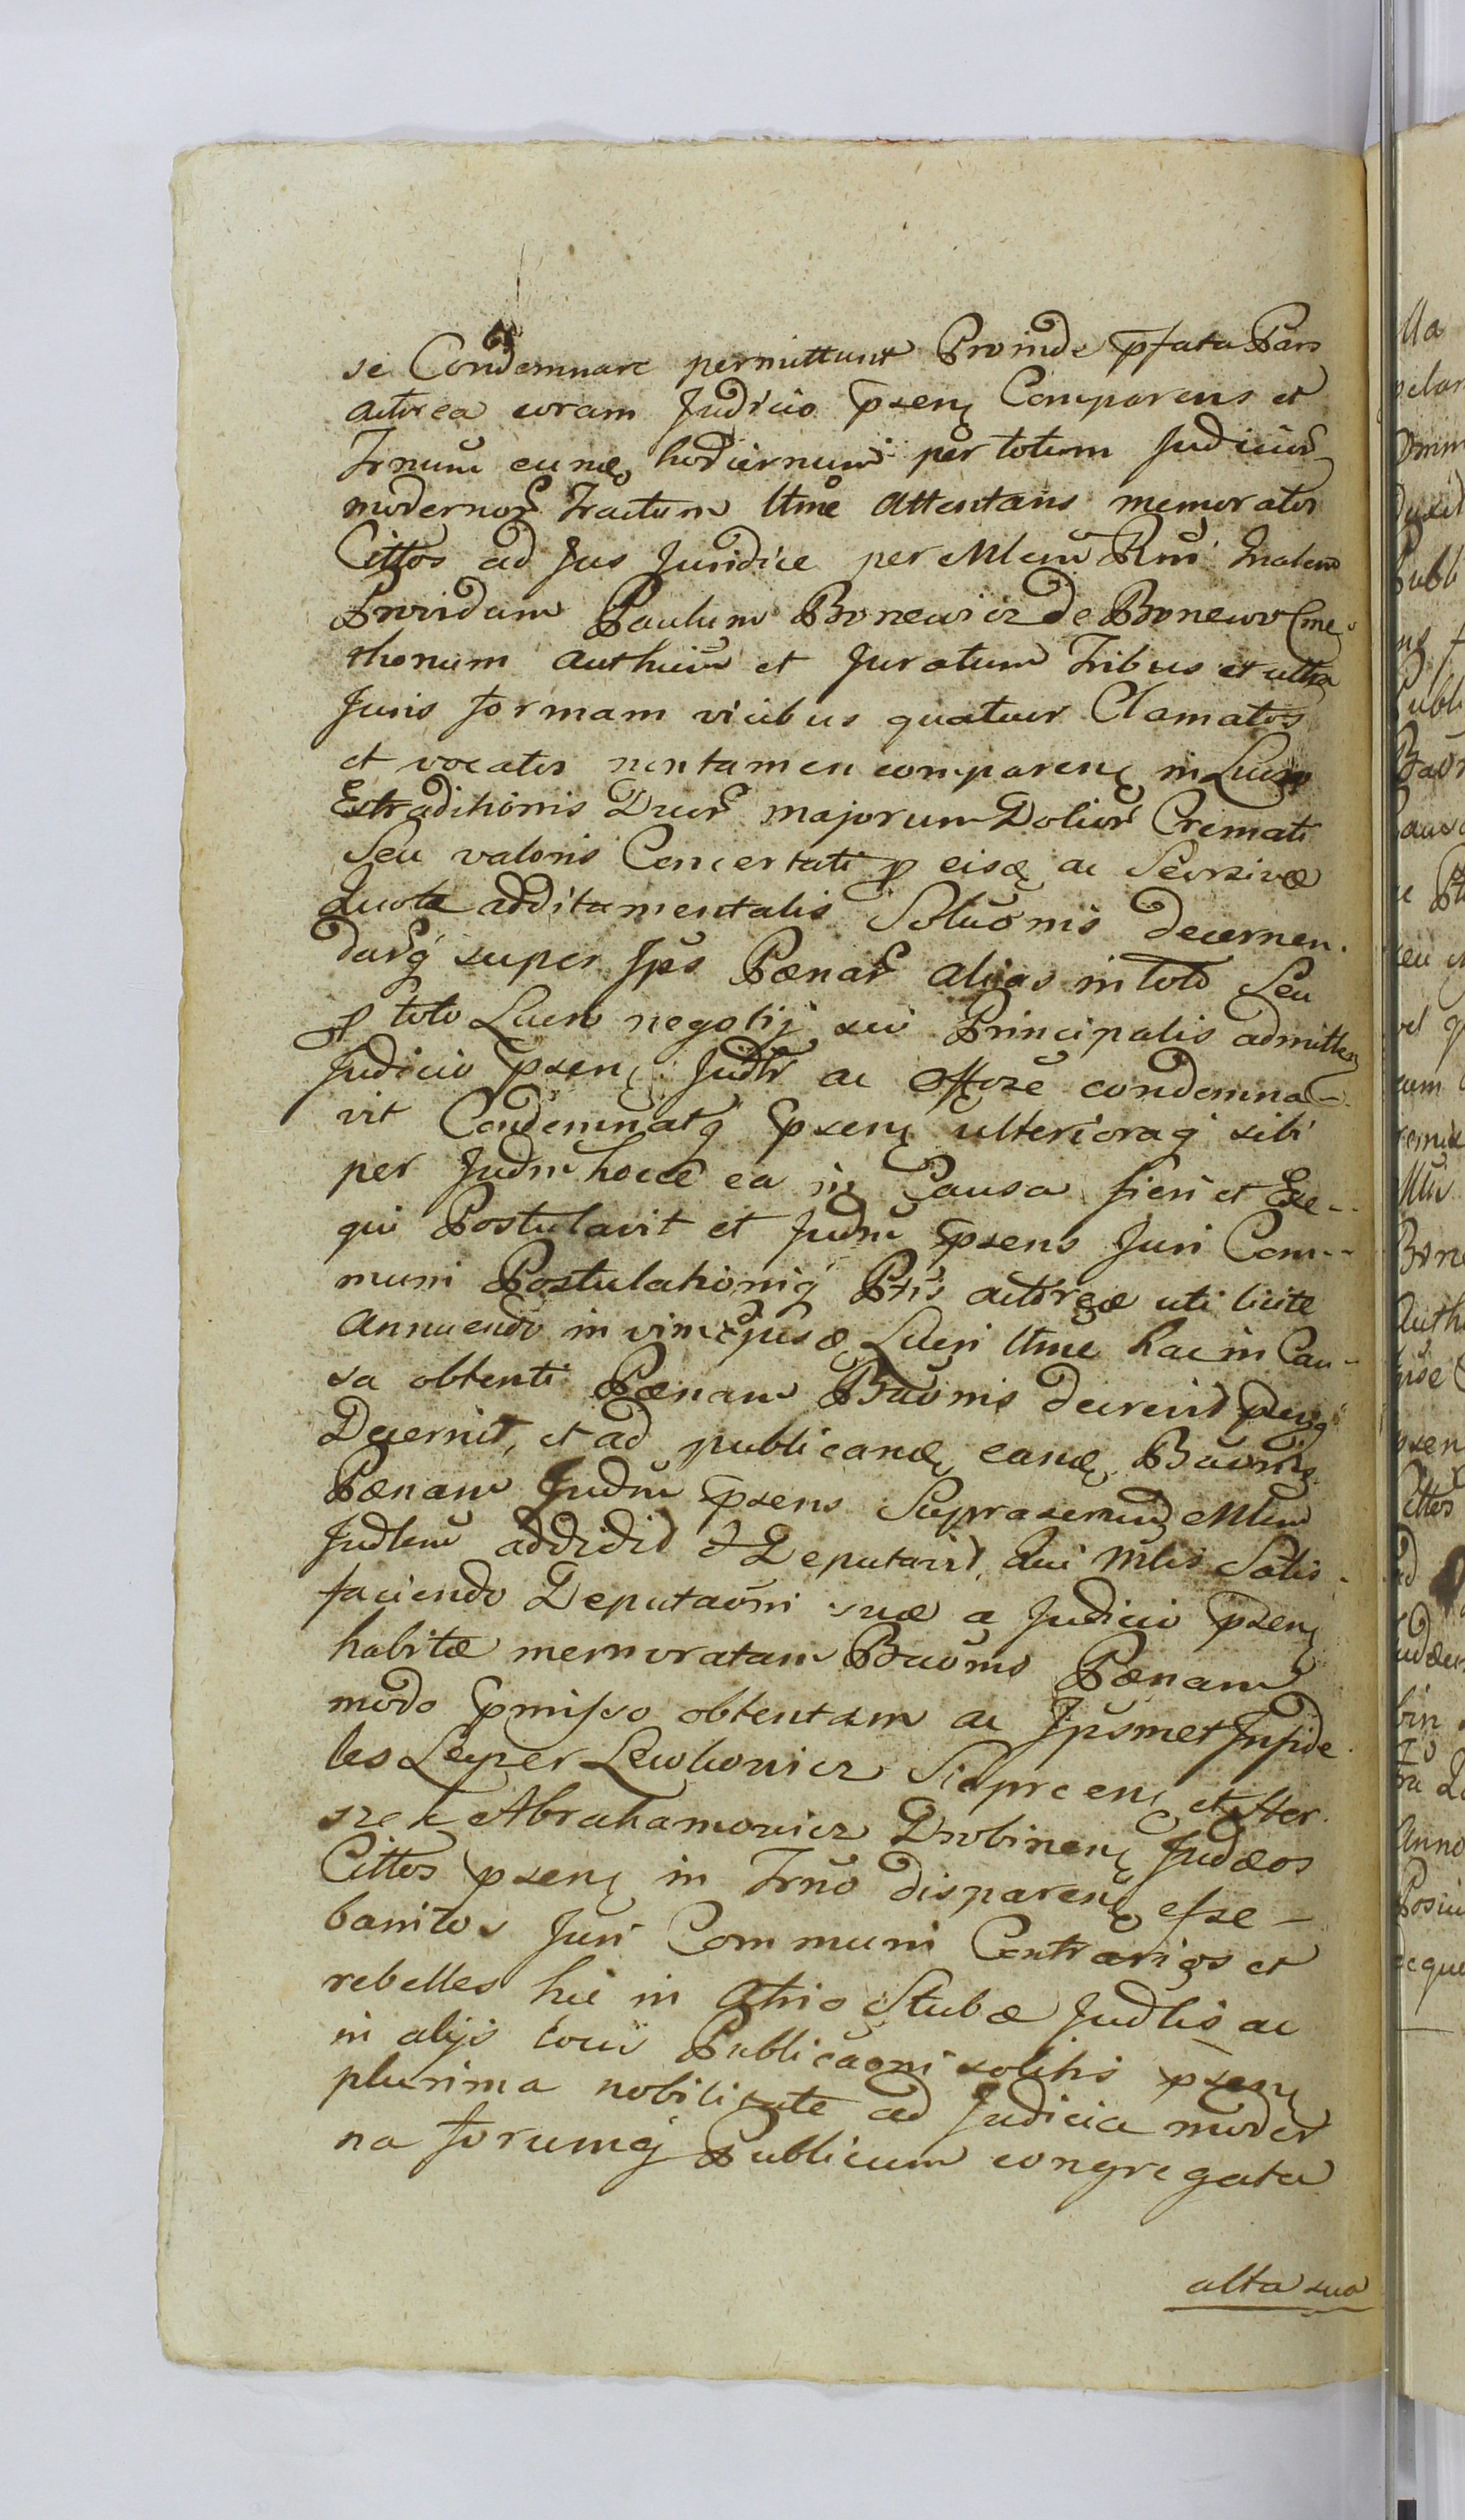 se Condemnare permittunt Proinde pfata Pars
actorea coram Judicio psenȩ Comparens et
Trnum eundȩ hodiernum per totum Judicior
modernor Tractum ltme Attentans memoratos
Cittos ad Jus Juridice per Mlem Rni Gnalem
Providum Paulum Bonewicz de Bonewo Cme
thonum authicum et Juratum Tribus et ultra
Juris formam vicibus quatuor Clamatos
et vocatos nontamen comparenȩ in Lucro
Extraditionis Duor majorum Dolior Cremati
Seu valoris Concertati p eisdȩ ac Seorsivæ
quotæ additamentalis Soluonis decernen
darq super Jps Pænar alias in toto Seu
p toto Lucro negotij sui Principalis admitten
Judicio psenȩ Judlr ac offose condemna
vit Condemnatq psenȩ ulterioraq sibi
per Judm hocce ea in Causa fieri et Exe
qui Postulavit et Judm psens Juri Com
muni Postulationiq Ptis actoreæ uti licite
annuendo in vim ejusdȩ Lucri ltme hac in Cau
sa obtenti Pænam Bauonis decrevit psensq
Decernit, et ad publicandȩ eandȩ Bauonis
Pænam Judm psens Suprascrium Mlem
Judlem addidit & Deputavit, Qui Mlis Satis
faciendo Deputaoni suæ a Judicio psenȩ
habitæ memoratam Bauonis Pænam
modo pmisso obtentam ac Jpsmet Jnfide
les Leyzer Lewkowicz Siepreenȩ et Her
szek Abrahamowicz Drobinenȩ Judæos
Cittos psenȩ in Trno disparenȩ esse
banitos Juri Communi Contrarios et
rebelles hic in Atrio Stubæ Judlis ac
in alijs locis Publicaoni solitis psenȩ
plurima nobilitate ad Judicia moder
na forumq Publicum congregata
alta sua